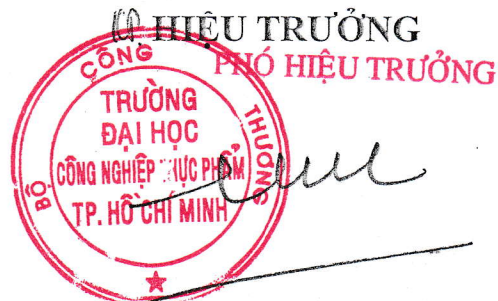 HIỆU TRƯỞNG
PHÓ HIỆU TRƯỞNG
BỘ CÔNG THƯƠNG
TRƯỜNG
ĐẠI HỌC
CÔNG NGHIỆP THỰC PHẨM
TP. HỒ CHÍ MINH